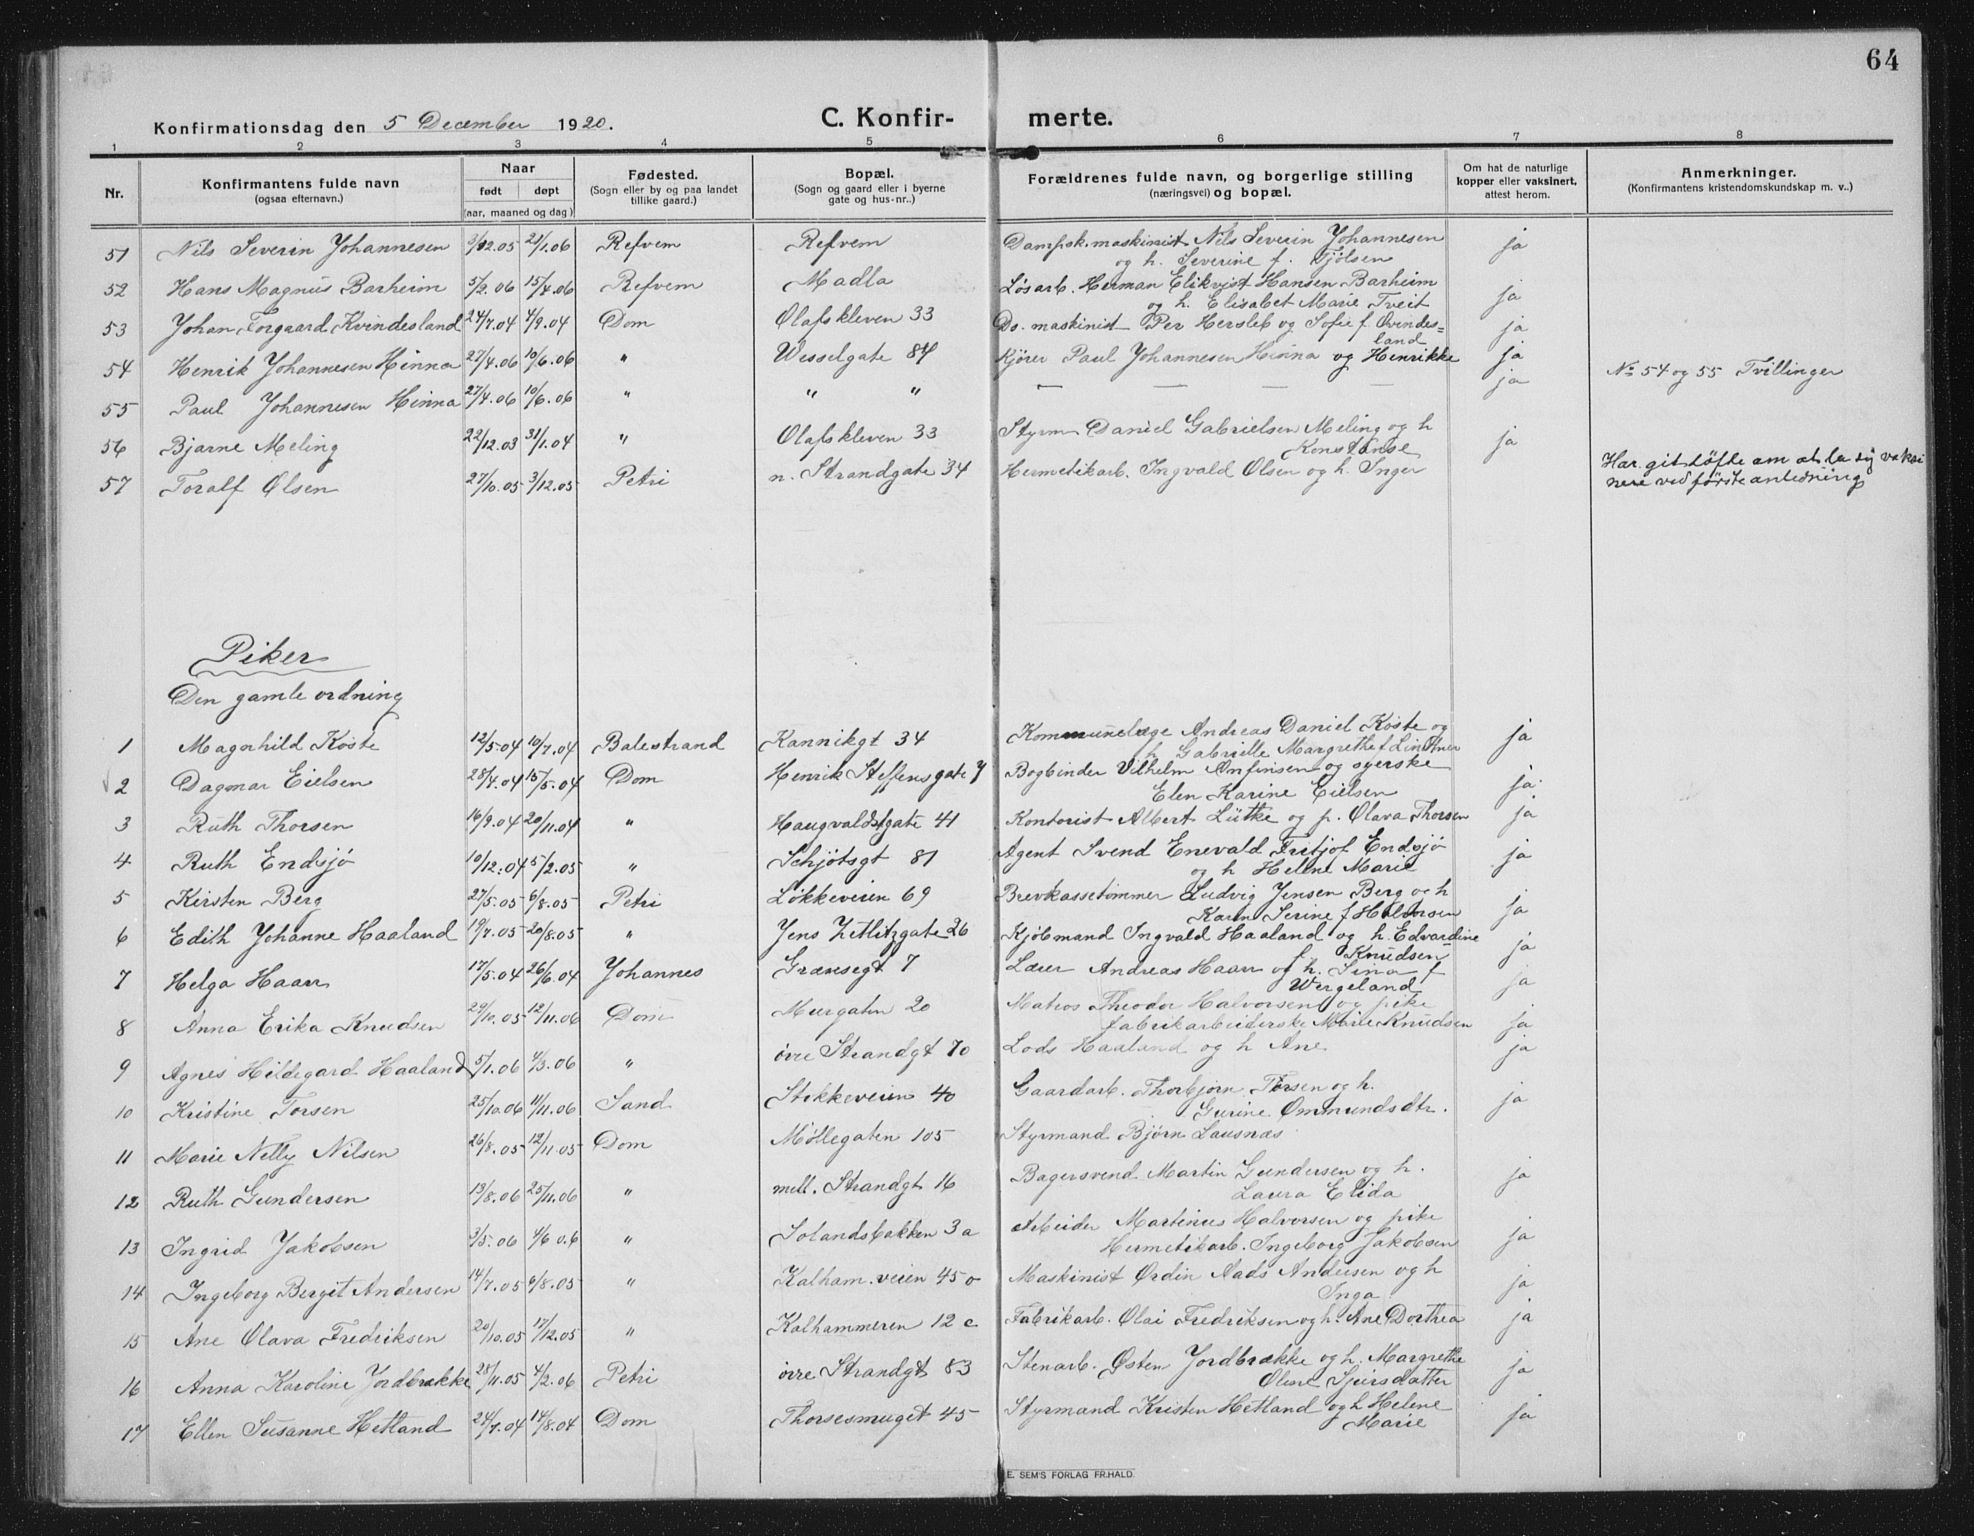 64
Konfirmationsdag den 5 December 1920.
C. Konfir-
merte.
1 2 3 4 5 6 7 8
Nr.
Konfirmantens fulde navn
(ogsaa efternavn.)
Naar
født døpt
(aar, maaned og dag)
Fødested.
(Sogn eller by og paa landet
tillike gaard.)
Bopæl.
(Sogn og gaard eller i byerne
gate og hus-nr..)
Forældrenes fulde navn, og borgerlige stilling
(næringsvei) og bopæl.
Om hat de naturlige
kopper eller vaksinert,
attest herom.
Anmerkninger.
(Konfirmantens kristendomskundskap m. v..)
51 Nils Severin Johannesen 9/12.05 21/1.06 Refvem Refvem Dampsk.maskinist Nils Severin Johannesen ja
og h. Severine f. Tjölsen
52 Hans Magnus Barheim 5/2.06 15/4.06 Refvem Madla Løsarb. Herman Elikvist Hansen Barheim ja
og h. Elisabet Marie Tveit
53 Johan Torgaard Kvindesland 24/7.04 4/9.04 Dom Olafskleven 33 Ds. maskinist Per Hersleb og Sofie f. Qvindes= ja
land
54 Henrik Johannesen Hinna 27/4.06 10/6.06 " Wesselgate 84 Kjörer Paul Johannesen Hinna og Henrikke ja
No 54 og 55 Tvillinger
55 Paul Johannesen Hinna 27/4.06 10/6.06 " " " — — — — ja
56 Bjarne Meling 22/12.03 31/1.04 " Olafskleven 33 Styrm. Daniel Gabrielsen Meling og h ja
Konstanse
57 Toralf Olsen 27/10.05 3/12.05 Petri n. Strandgate 34 Hermetikarb. Ingvald Olsen og h. Inger Har git løfte om at la sig vaksi
nere ved første anledning
Piker
Den gamle ordning
1 Magnhild Koste 12/5.04 10/7.04 Balestrand Kannikgt 34 Kommunelæge Andreas Daniel Koste og ja
h Gabrielle Margrethe f Lindtner
2 Dagmar Eielsen 28/4.04 15/5.04 Dom Henrik Steffensgate 7 Bogbinder Vilhelm Anfinsen og syerske ja
Elen Karine Eielsen
3 Ruth Thorsen 16/9.04 20/11.04 " Haugvaldstgate 41 Kontorist Albert Lütke og p. Olava Thorsen ja
4 Ruth Endsjø 10/12.04 5/2.05 " Schjötsgt 81 Agent Svend Enevald Fritjof Endsjø ja
og h Helene Marie
5 Kirsten Berg 27/5.05 6/8.05 Petri Løkkeveien 69 Brevkassetømmer Ludvig Jensen Berg og h ja
Karen Serine f Halvorsen
6 Edith Johanne Haaland 19/7.05 20/8.05 " Jens Zetlitzgate 26 Kjøbmand Ingvald Haaland og h. Edvardine ja
f. Knudsen
7 Helga Haarr 17/5.04 26/6.04 Johannes Grænsegt 7 Lærer Andreas Haarr og h. Sina f ja
Wergeland
8 Anna Erika Knudsen 29/10.05 12/11.06 Dom Murgaten 20 Matros Theodor Halvorsen og pike
fabrikarbeiderske Marie Knudsen ja
9 Agnes Hildegard Haaland 5/1.06 4/3.06 " övre Strandgt 70 Lods Haaland og h Ane ja
10 Kristine Torsen 25/10.06 11/11.06 Sand Stokkeveien 40 Gaardarb. Thorbjørn Torsen og h. ja
Gurine Ommundsdtr.
11 Marie Nelly Nilsen 26/8.05 12/11.05 Dom Møllegaten 105 Styrmand Bjørn Lausnæs
12 Ruth Gundersen 13/8.06 25/11.06 " mell. Strandgt 16 Bagersvend Martin Gundersen og h. ja
Laura Elida
13 Ingrid Jakobsen 3/5.06 4/6 06 " Solandsbakken 3a Arbeider Martinus Halvorsen og pike ja
Hermetikarb. Ingeborg Jakobsen
14 Ingeborg Bergit Andersen 14/7.05 6/8.05 " Kalham.veien 45 Maskinist Ordin Aads Andersen og h ja
Inga
15 Ane Olava Fredriksen 20/10.05 17/12.05 " Kalhammeren 12 c Fabrikarb. Olai Fredriksen og h. Ane Dorthea ja
16 Anna Karoline Jordbrække 28/11.05 4/2.06 Petri övre Strandgt 83 Stenarb. Østen Jordbrække og h. Margrethe ja
Oline Sjursdatter
17 Ellen Susanne Hetland 24/7.04 14/8.04 Dom Thorsesmuget 45 Styrmand Kristen Hetland og h Helene ja
Marie
E. SEM'S FORLAG FR.HALD.